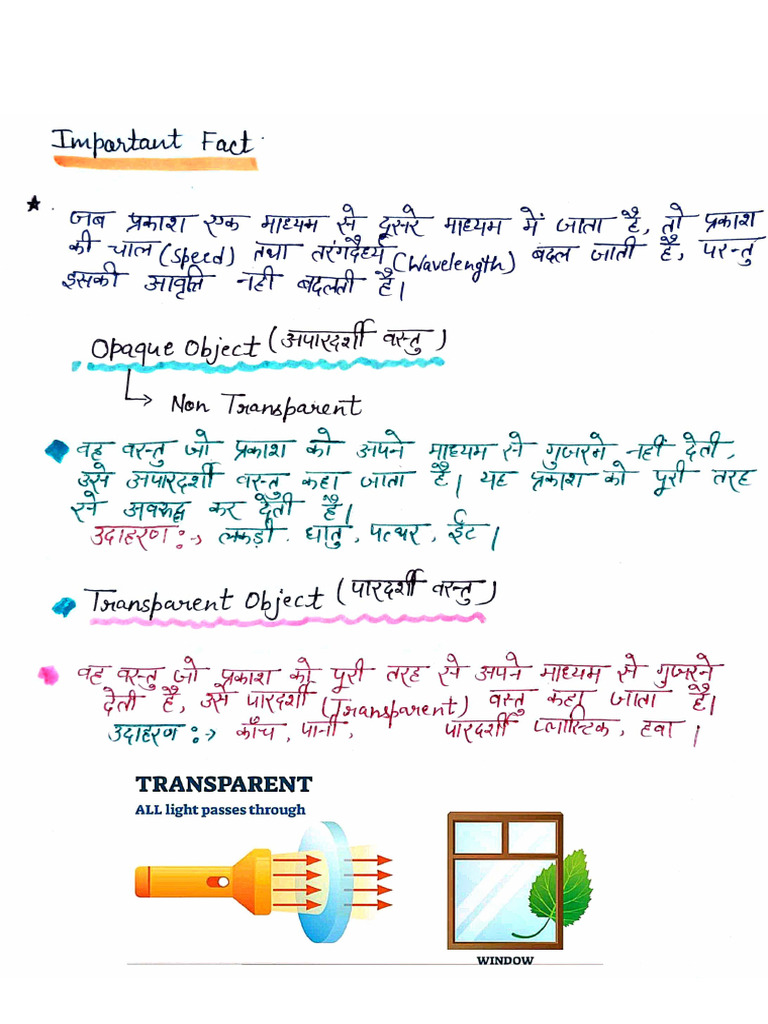 Important Fact.
★ जब प्रकाश एक माध्यम से दूसरे माध्यम में जाता है, तो प्रकाश
की चाल (Speed) तथा तरंगदैर्ध्य (Wavelength) बदल जाती है, परन्तु
इसकी आवृत्ति नही बदलती है।
Opaque Object (अपारदर्शी वस्तु)
↳ Non Transparent
वह वस्तु जो प्रकाश को अपने माध्यम से गुजरने नहीं देती,
उसे अपारदर्शी वस्तु कहा जाता है। यह प्रकाश को पूरी तरह
से अवरुद्ध कर देती है।
उदाहरण :→ लकड़ी, धातु, पत्थर, ईंट।
Transparent Object (पारदर्शी वस्तु)
वह वस्तु जो प्रकाश को पूरी तरह से अपने माध्यम से गुजरने
देती है, उसे पारदर्शी (Transparent) वस्तु कहा जाता है।
उदाहरण :→ काँच, पानी, पारदर्शी प्लास्टिक, हवा।
TRANSPARENT
ALL light passes through
WINDOW